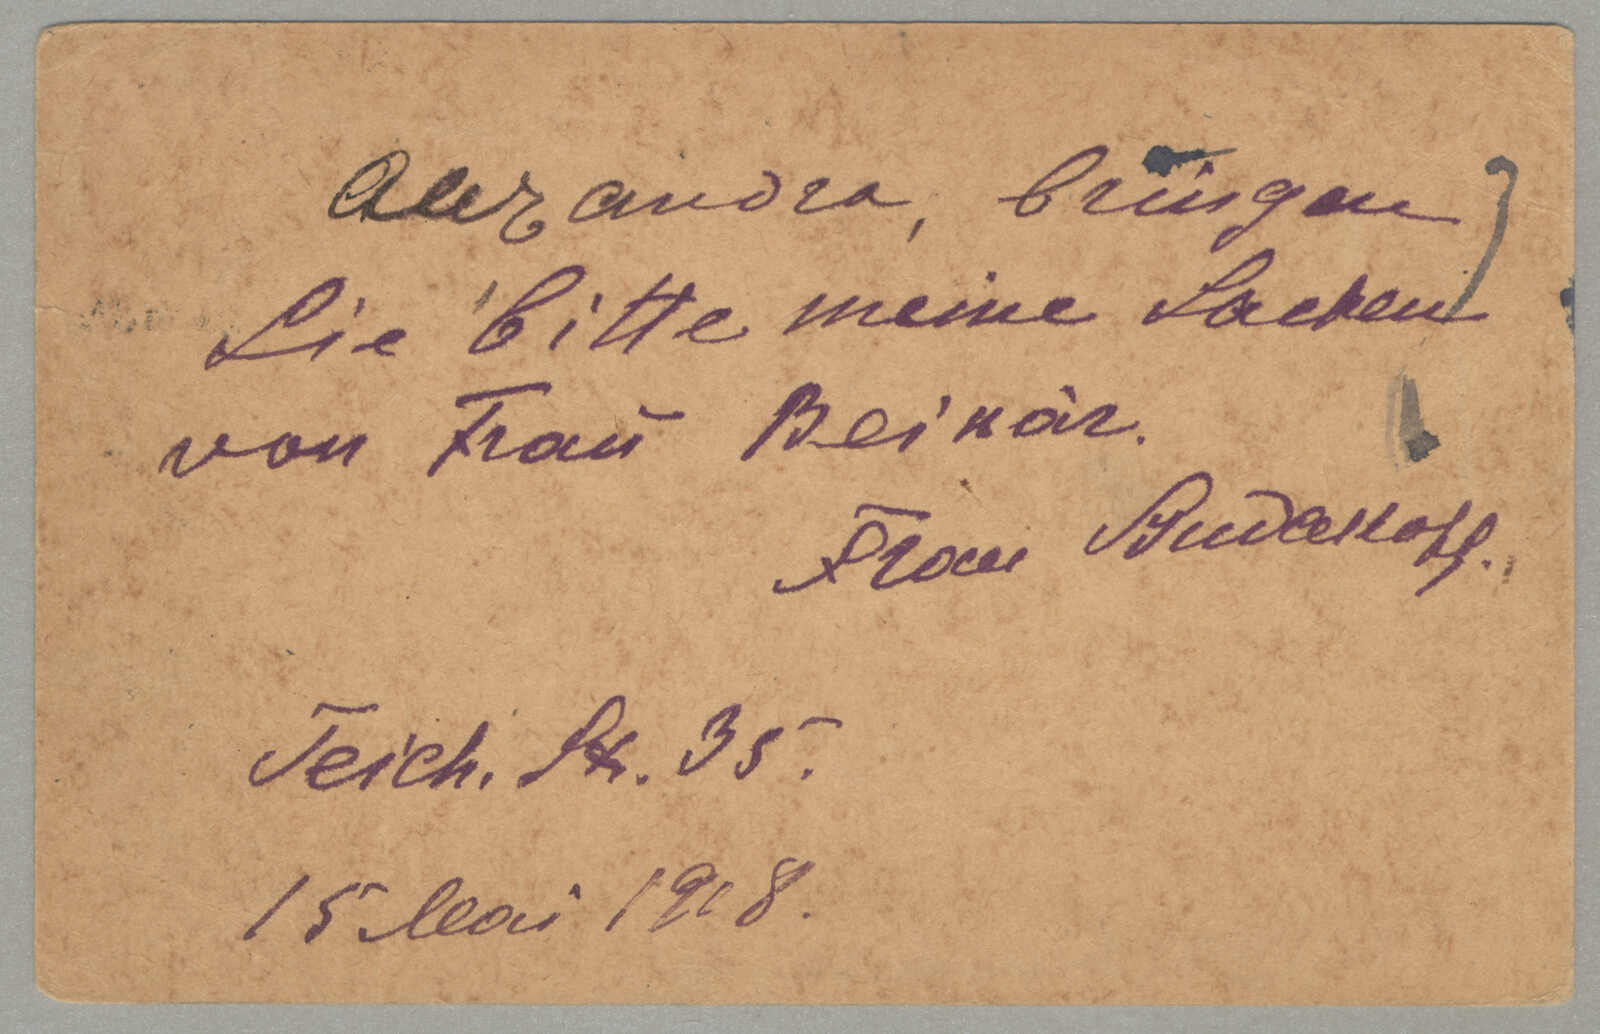 Alexandra, brüngen
Sie bitte meine Sachen
von Fraŭ Beinàr.
Frau
Teich. Str. 35.
15 Mai 1918.